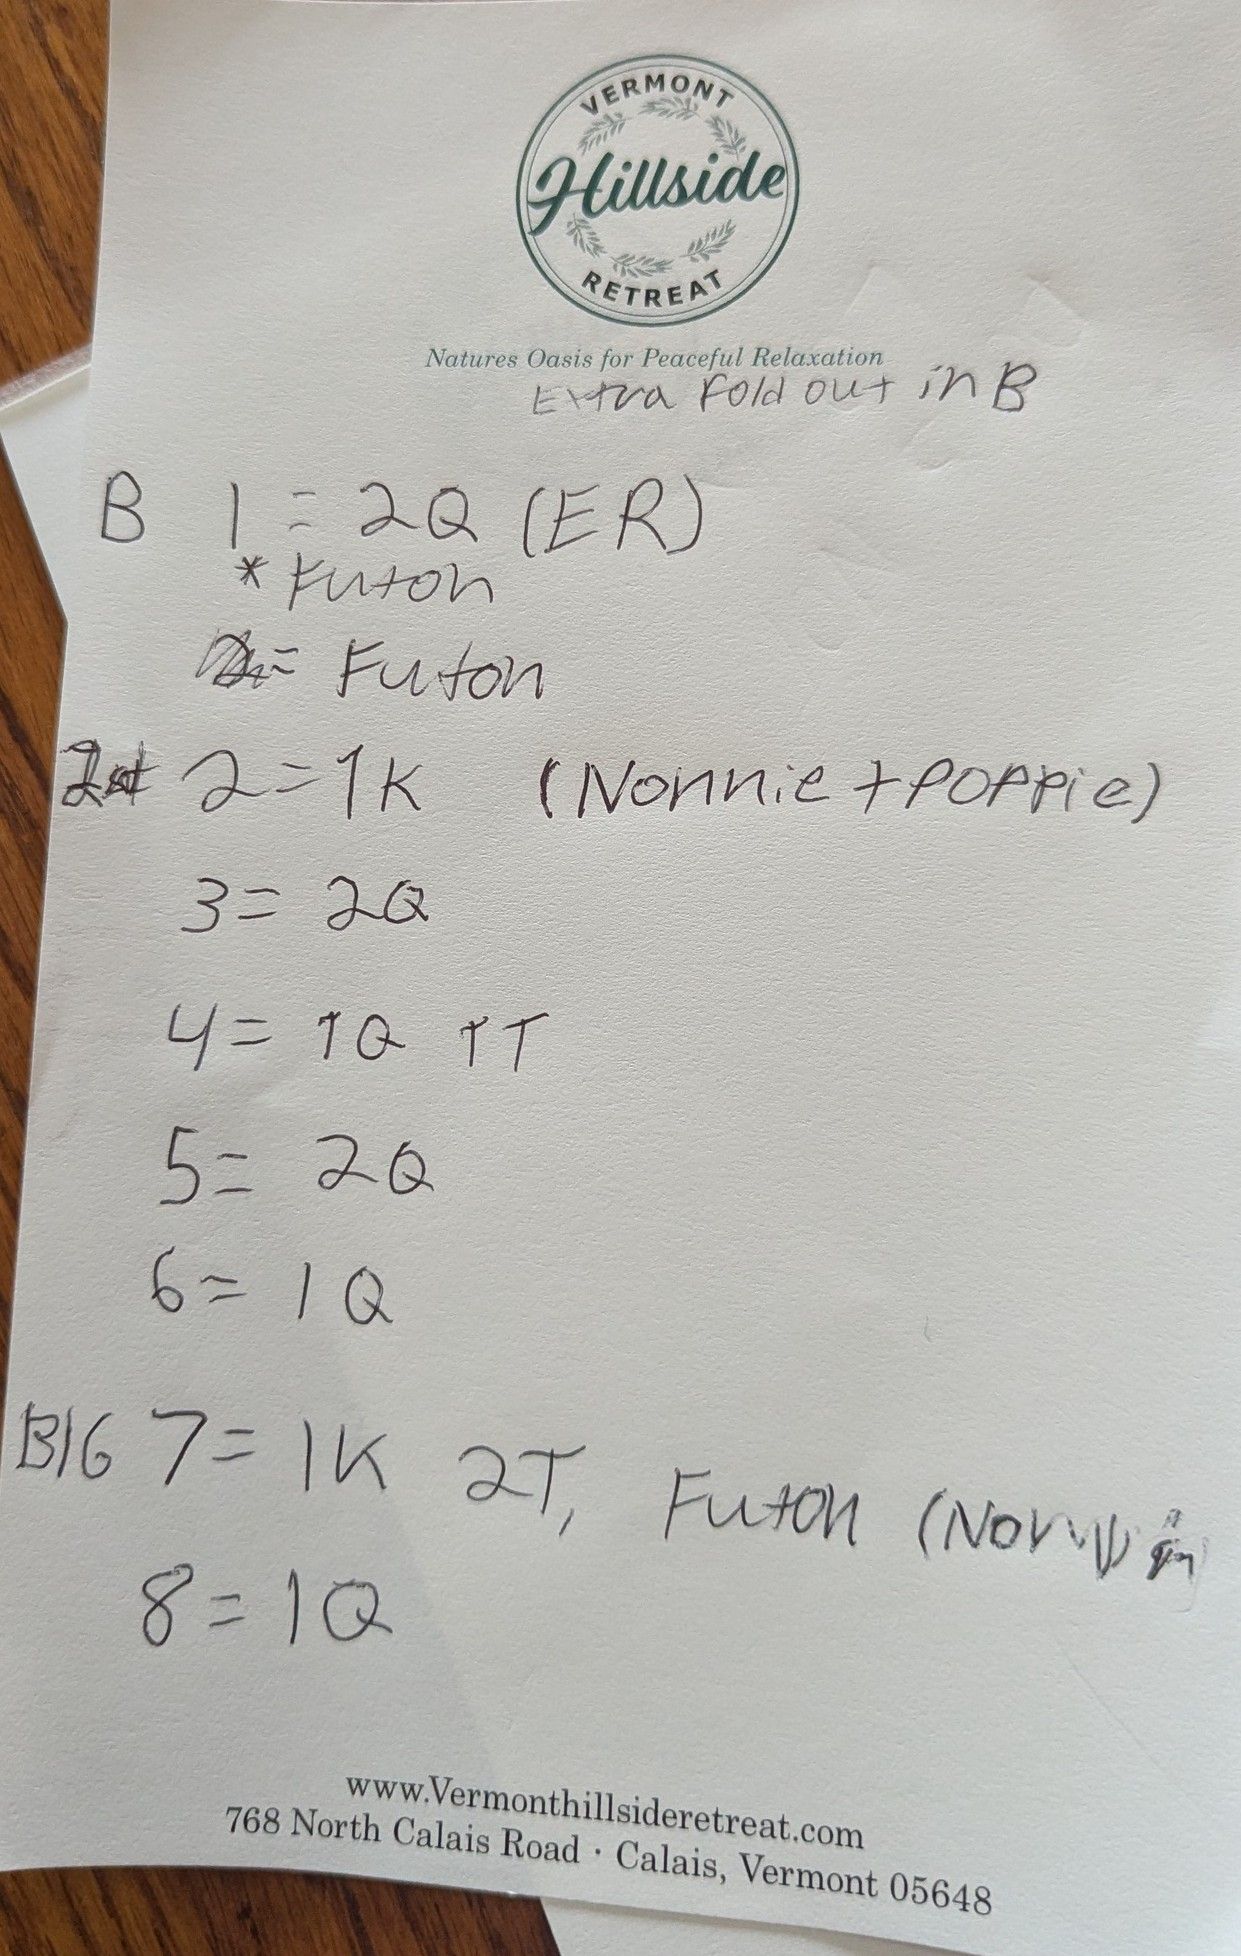 VERMONT
Hillside
RETREAT
Natures Oasis for Peaceful Relaxation
Extra Fold out in B
B 1 = 2Q (ER)
* Futon
= Futon
2 = 1K (Nonnie + POPPie)
3 = 2Q
4 = 1Q 1T
5 = 2Q
6 = 1Q
BIG 7 = 1K 2T, Futon
8 = 1Q
www.Vermonthillsideretreat.com
768 North Calais Road · Calais, Vermont 05648